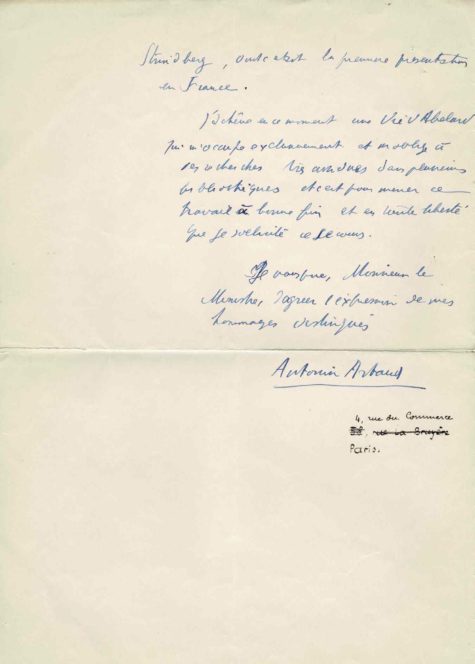 Strindberg, dont c'était la première présentation
en France.
J'achève en ce moment une Vie d'Abélard
qui m'occupe exclusivement et m'oblige à
des recherches très ardues dans plusieurs
bibliothèques et c'est pour mener ce
travail à bonne fin et en toute liberté
que je sollicite ce secours.
Je vous prie, Monsieur le
Ministre, d'agréer l'expression de mes
hommages distingués
Antonin Artaud
4, rue du Commerce
rue La Bruyère
Paris.